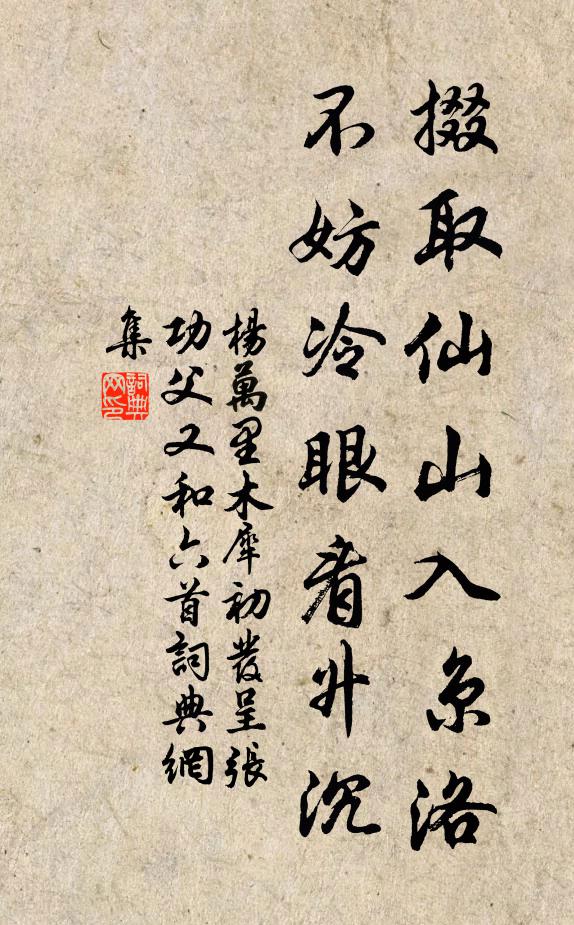 掇取仙山入京洛
不妨冷眼看升沉
楊萬里木犀初發呈張
功父又和六首詞典網
集
詞典
网印